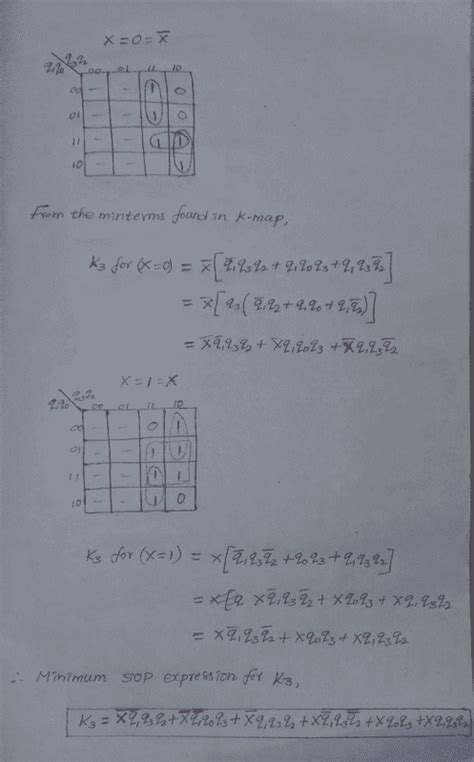 X = 0 = X̅
q₁q₀ q₃q₂ 00 01 11 10
00 - - 1 0
01 - - 1 0
11 - - 1 1
10 - - 1
From the minterms found in K-map,
K₃ for (X=0) = x̅[q̅₁q₃q₂ + q₁q₀q₃ + q₁q₃q̅₂]
= x̅[q₃(q̅₁q₂ + q₁q₀ + q₁q̅₂)]
= x̅q̅₁q₃q₂ + x̅q₁q₀q₃ + x̅q₁q₃q̅₂
X = 1 = X
q₁q₀ q₃q₂ 00 01 11 10
00 - - 0 1
01 - - 1 1
11 - - 1 1
10 - - 1 0
K₃ for (X=1) = x[q̅₁q₃q̅₂ + q₀q₃ + q₁q₃q₂]
= xq̅₁q₃q̅₂ + xq₀q₃ + xq₁q₃q₂
= xq̅₁q₃q̅₂ + xq₀q₃ + xq₁q₃q₂
∴ Minimum SOP expression for K₃,
K₃ = x̅q̅₁q₃q₂ + x̅q₁q₀q₃ + x̅q₁q₃q₂ + xq̅₁q₃q̅₂ + xq₀q₃ + xq₁q₃q₂